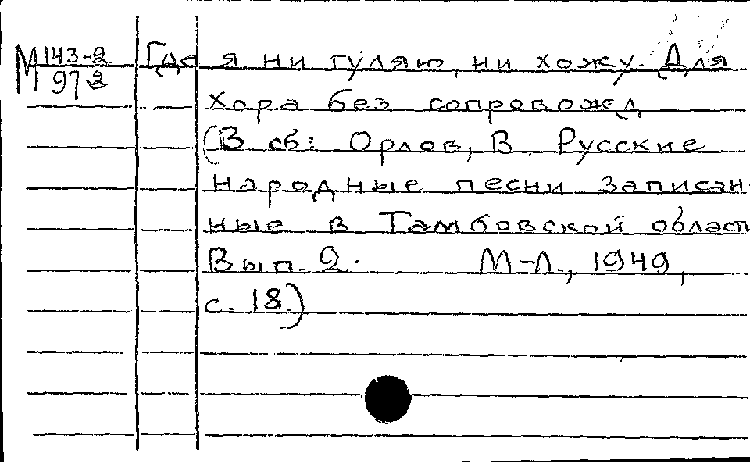 М 143-2 Где я ни гуляю, ни хожу. Для
97 2
хора без сопровожд
(В сб: Орлов, В. Русские
народные песни записан-
ные в Тамбовской област
Вып 2. М-Л., 1949,
с. 18.)